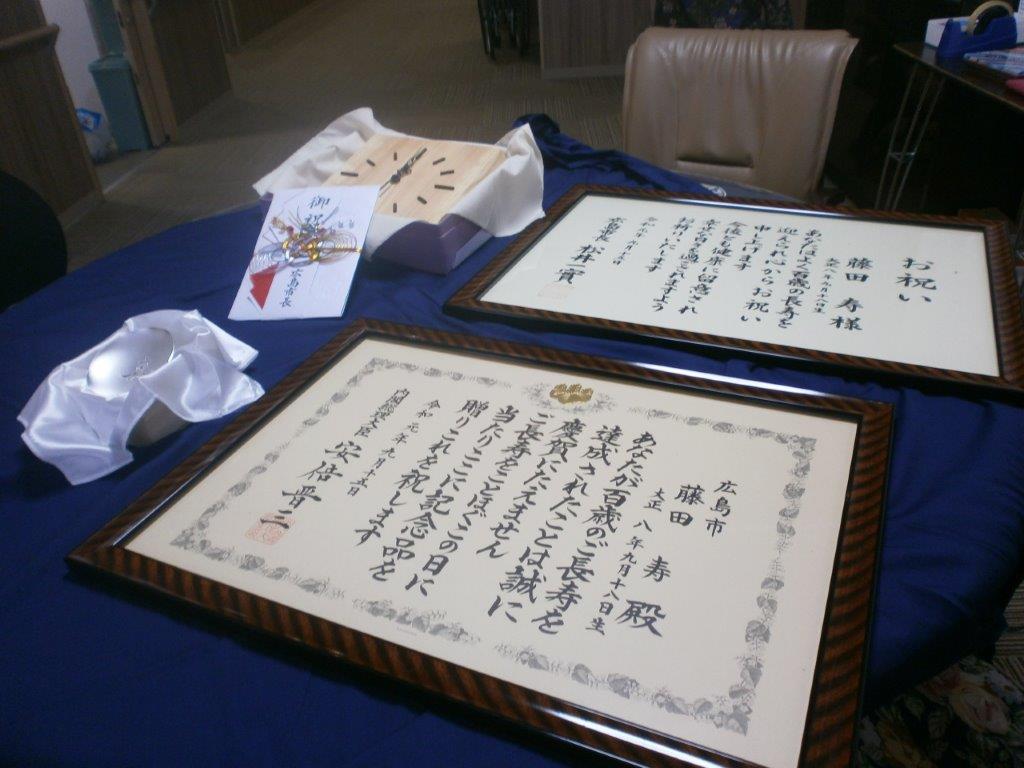 広島市
藤田 寿 殿
大正 八 年 九 月 十 八 日 生
あなたが百歳のご長寿を
達成されたことは誠に
慶賀にたえません
ご長寿をことほぐこの日に
当たりここに記念品を
贈りこれを祝します
令和 元 年 九 月 十 五 日
内閣総理大臣 安倍晋三
お祝い
藤田 寿 様
大正八年九月十八日生
あなたはよく百歳の長寿を
迎えられ心からお祝い
申し上げます
今後とも健康に留意され
幸せな日々を過ごされますよう
お祈りいたします
令和元年九月十五日
広島市長 松井一實
御祝
広島市長